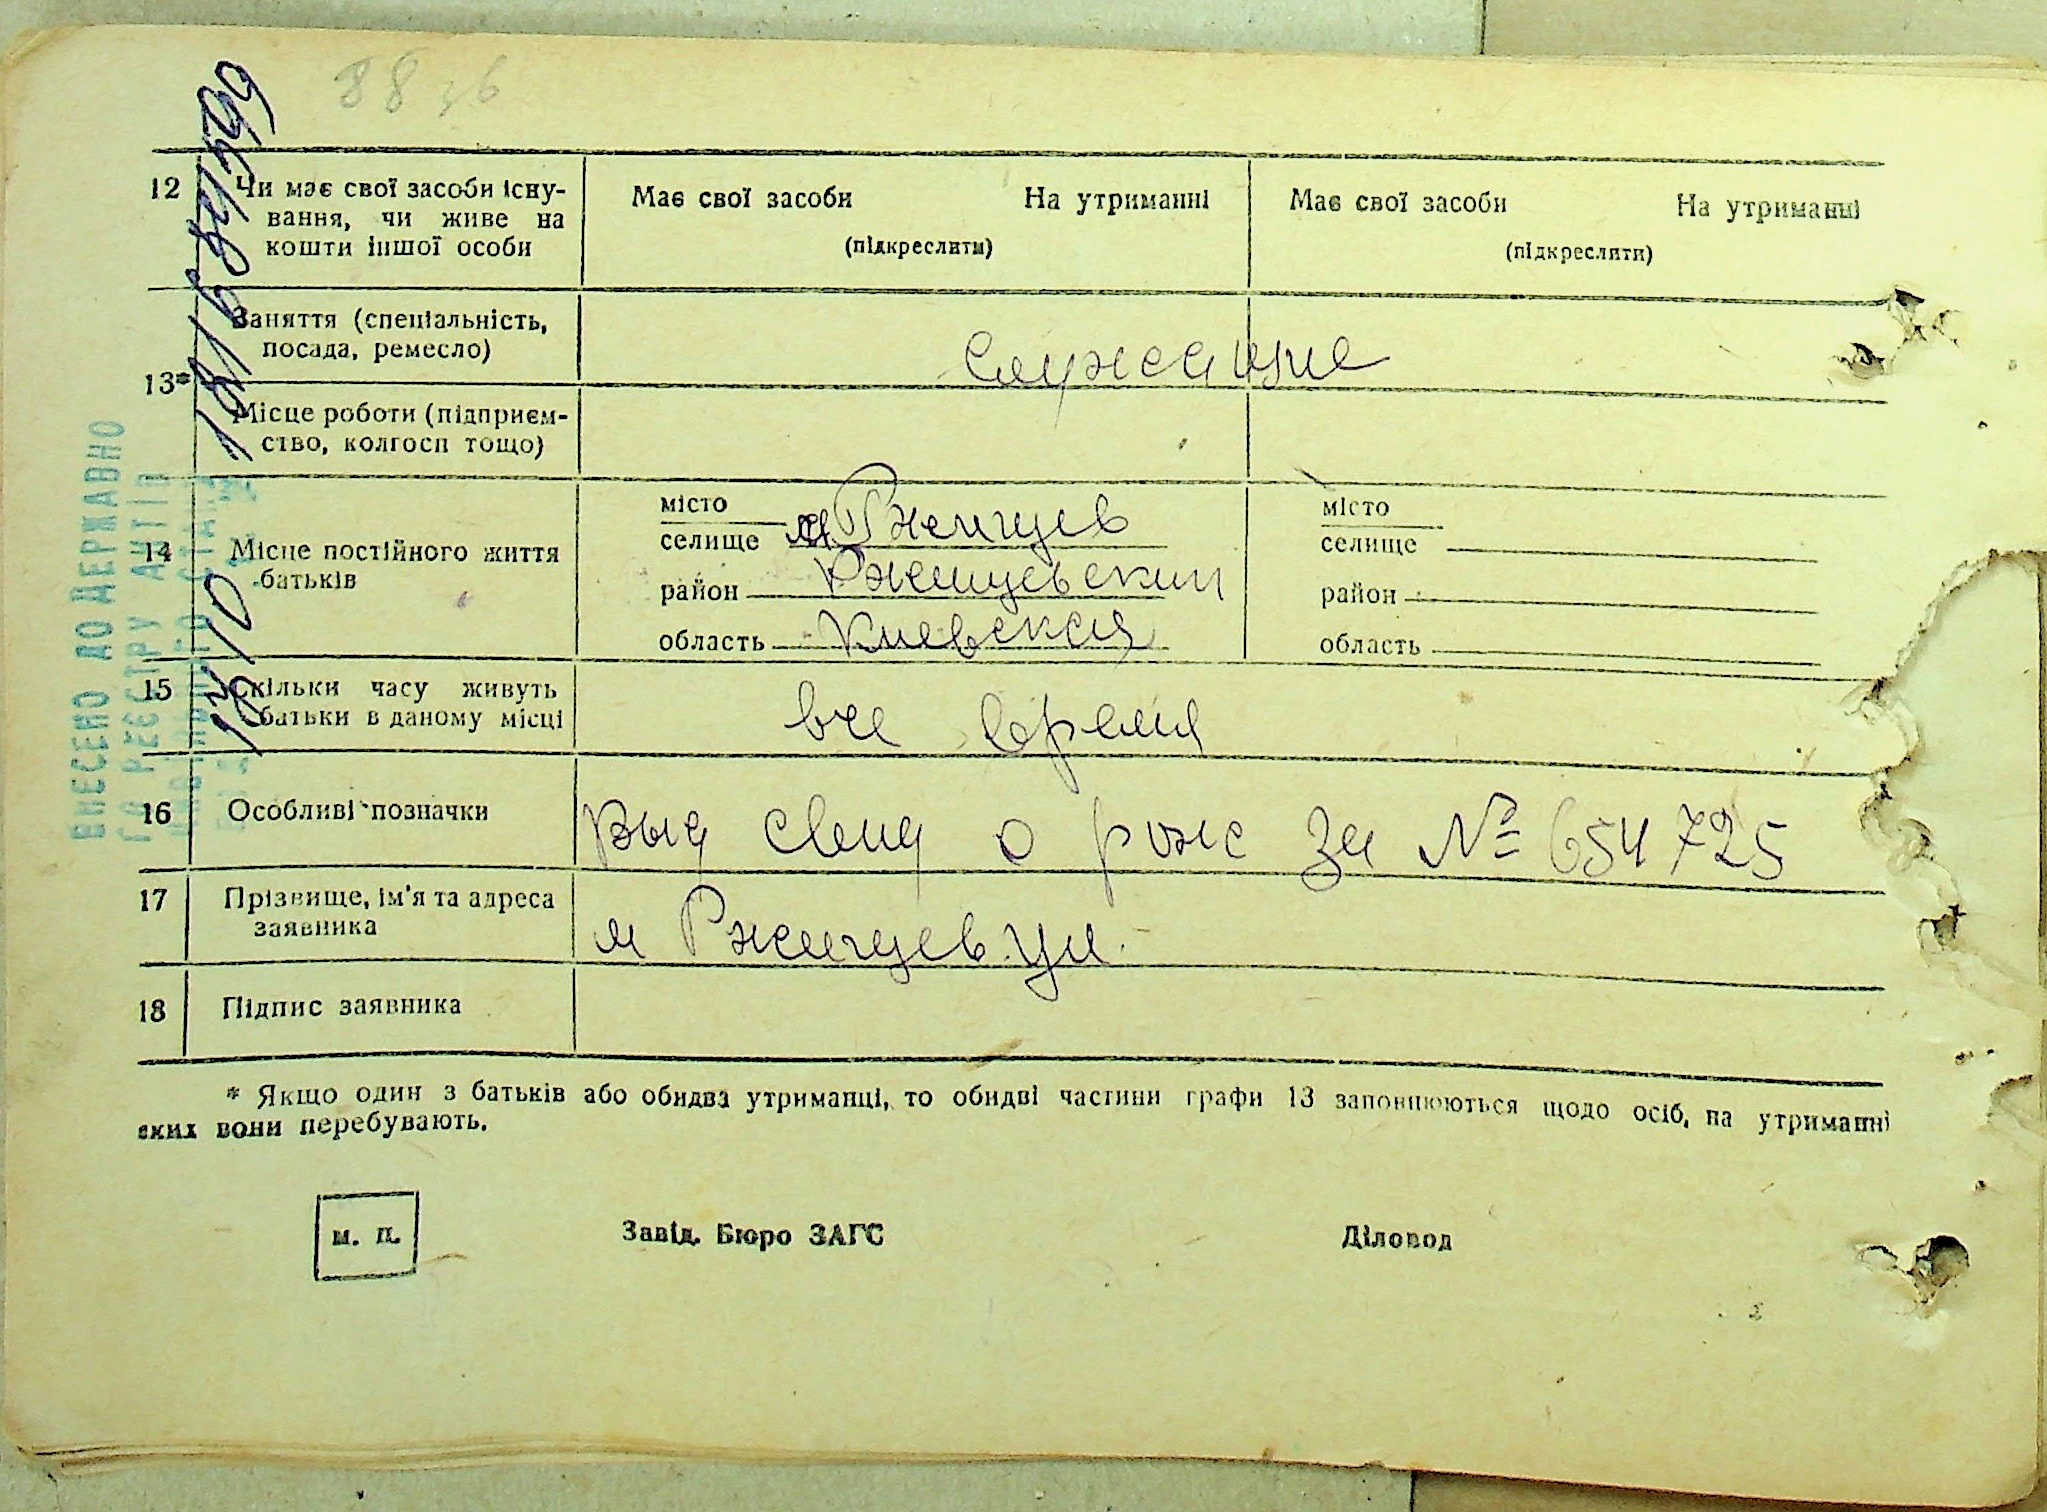 88 зв
12 Чи має свої засоби існу-
вання, чи живе на
кошти іншої особи
Має свої засоби На утриманні
(підкреслити)
Має свої засоби На утриманні
(підкреслити)
13*
Заняття (спеціальність,
посада, ремесло)
служащие
Місце роботи (підприєм-
ство, колгосп тощо)
14 Місце постійного життя
батьків
місто
селище м. Ржищев
район Ржищевский
область Киевская
місто
селище
район
область
15 Скільки часу живуть
батьки в даному місці
все время
16 Особливі позначки
Выд свид о рож за № 654725
17 Прізвище, ім'я та адреса
заявника
м Ржищев ул.
18 Підпис заявника
* Якщо один з батьків або обидва утриманці, то обидві частини графи 13 заповнюються щодо осіб, на утриманні
яких вони перебувають.
м. п.
Завід. Бюро ЗАГС
Діловод
ВНЕСЕНО ДО ДЕРЖАВНО
ГО РЕЄСТРУ АКТІВ